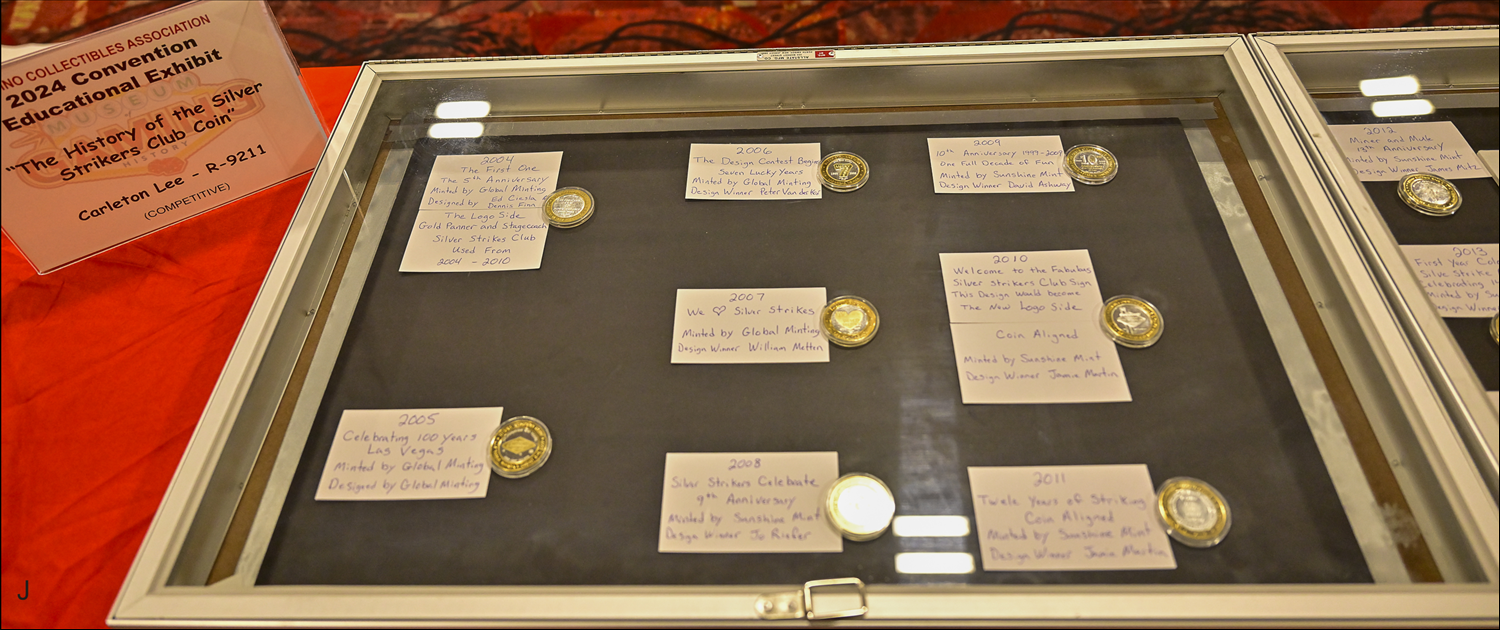 NO COLLECTIBLES ASSOCIATION
2024 Convention
Educational Exhibit
MUSEUM
HISTORY
"The History of the Silver
Strikers Club Coin"
Carleton Lee - R-9211
(COMPETITIVE)
2004
The First One
The 5th Anniversary
Minted by Global Minting
Designed by Ed Ciesla &
Dennis Finn
The Logo Side
Gold Panner and Stagecoach
Silver Strikes Club
Used From
2004 - 2010
2005
Celebrating 100 years
Las Vegas
Minted by Global Minting
Designed by Global Minting
2006
The Design Contest Begins
Seven Lucky Years
Minted by Global Minting
Design Winner Peter
2007
We ♡ Silver Strikes
Minted by Global Minting
Design Winner William Metten
2008
Silver Strikers Celebrate
9th Anniversary
Minted by Sunshine Mint
Design Winner Jo Riefer
2009
10th Anniversary 1999-2009
One Full Decade of Fun
Minted by Sunshine Mint
Design Winner David Ashway
10
2010
Welcome to the Fabulous
Silver Strikers Club Sign
This Design would become
The New Logo Side
Coin Aligned
Minted by Sunshine Mint
Design Winner Jamie Martin
2011
Twele Years of Striking
Coin Aligned
Minted by Sunshine Mint
Design Winner Jamie Martin
2012
Miner and Mule
13th Anniversary
Minted by Sunshine Mint
Design Winner James Motz
2013
First Year Col
Silve Strike
Celebrating
Minted by Su
Design Winne
J